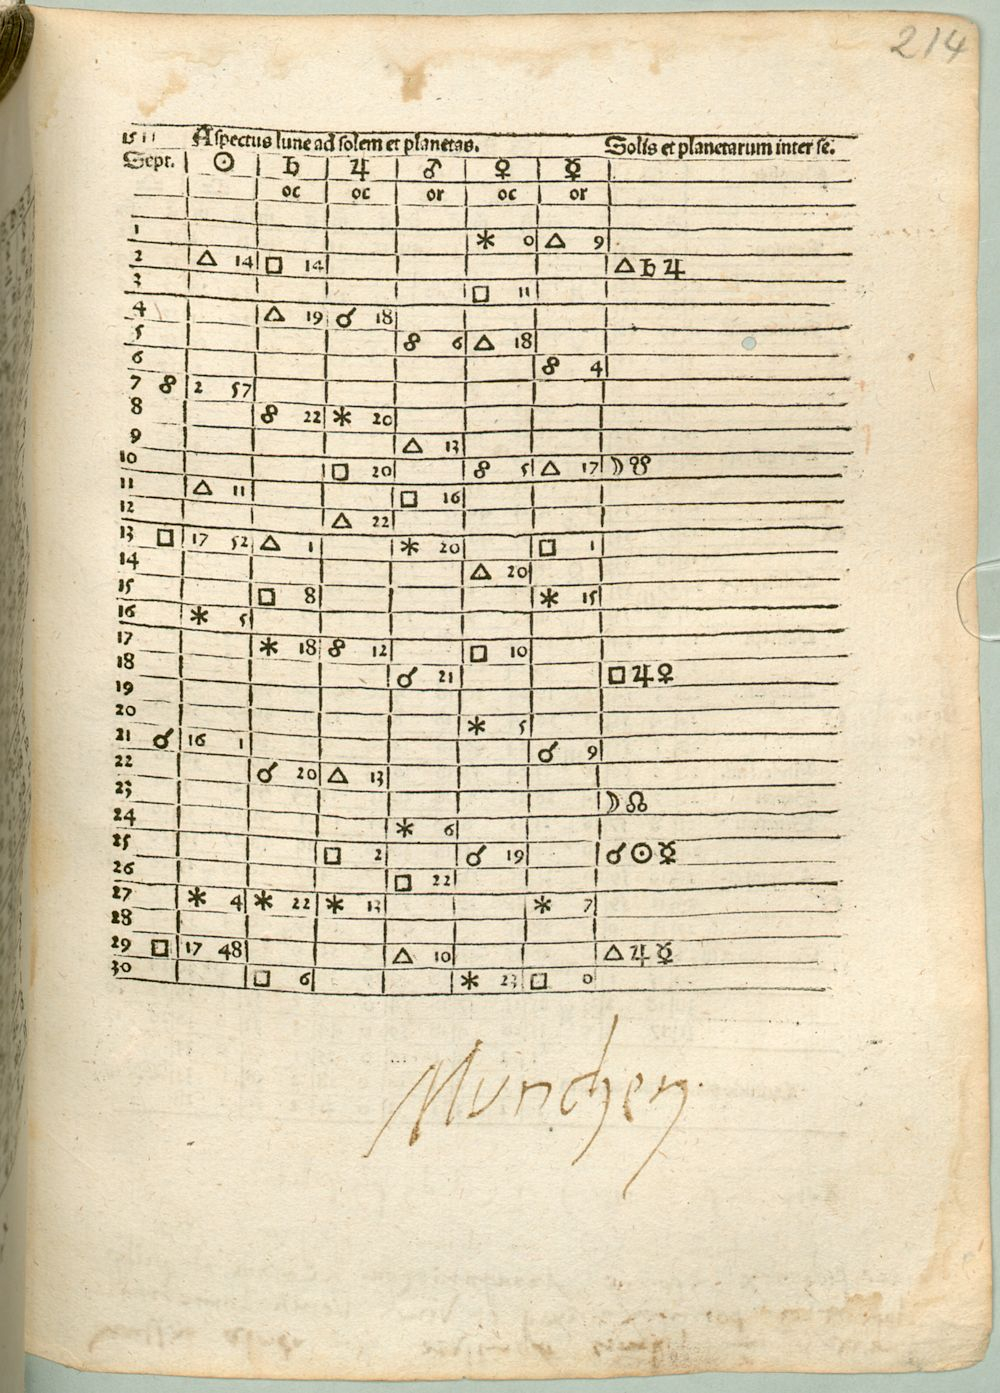 214
15 11 Aspectus lune ad solem et planetas. Solis et planetarum inter se.
Sept. ☉ ♄ ♃ ♂ ♀ ☿
oc oc or oc or
1 ⚹ 0 △ 9
2 △ 14 □ 14 △ ♄ ♃
3 □ 11
4 △ 19 ☌ 18
5 ☍ 6 △ 18
6 ☍ 4
7 ☍ 2 57
8 ☍ 22 ⚹ 20
9 △ 13
10 □ 20 ☍ 5 △ 17 ☽ ☋
11 △ 11 □ 16
12 △ 22
13 □ 17 52 △ 1 ⚹ 20 □ 1
14 △ 20
15 □ 8 ⚹ 15
16 ⚹ 5
17 ⚹ 18 ☍ 12 □ 10
18 ☌ 21 □ ♃ ♀
19
20 ⚹ 5
21 ☌ 16 1 ☌ 9
22 ☌ 20 △ 13
23 ☽ ☊
24 ⚹ 6
25 □ 2 ☌ 19 ☌ ☉ ☿
26 □ 22
27 ⚹ 4 ⚹ 22 ⚹ 13 ⚹ 7
28
29 □ 17 48 △ 10 △ ♃ ☿
30 □ 6 ⚹ 23 □ 0
Munchen